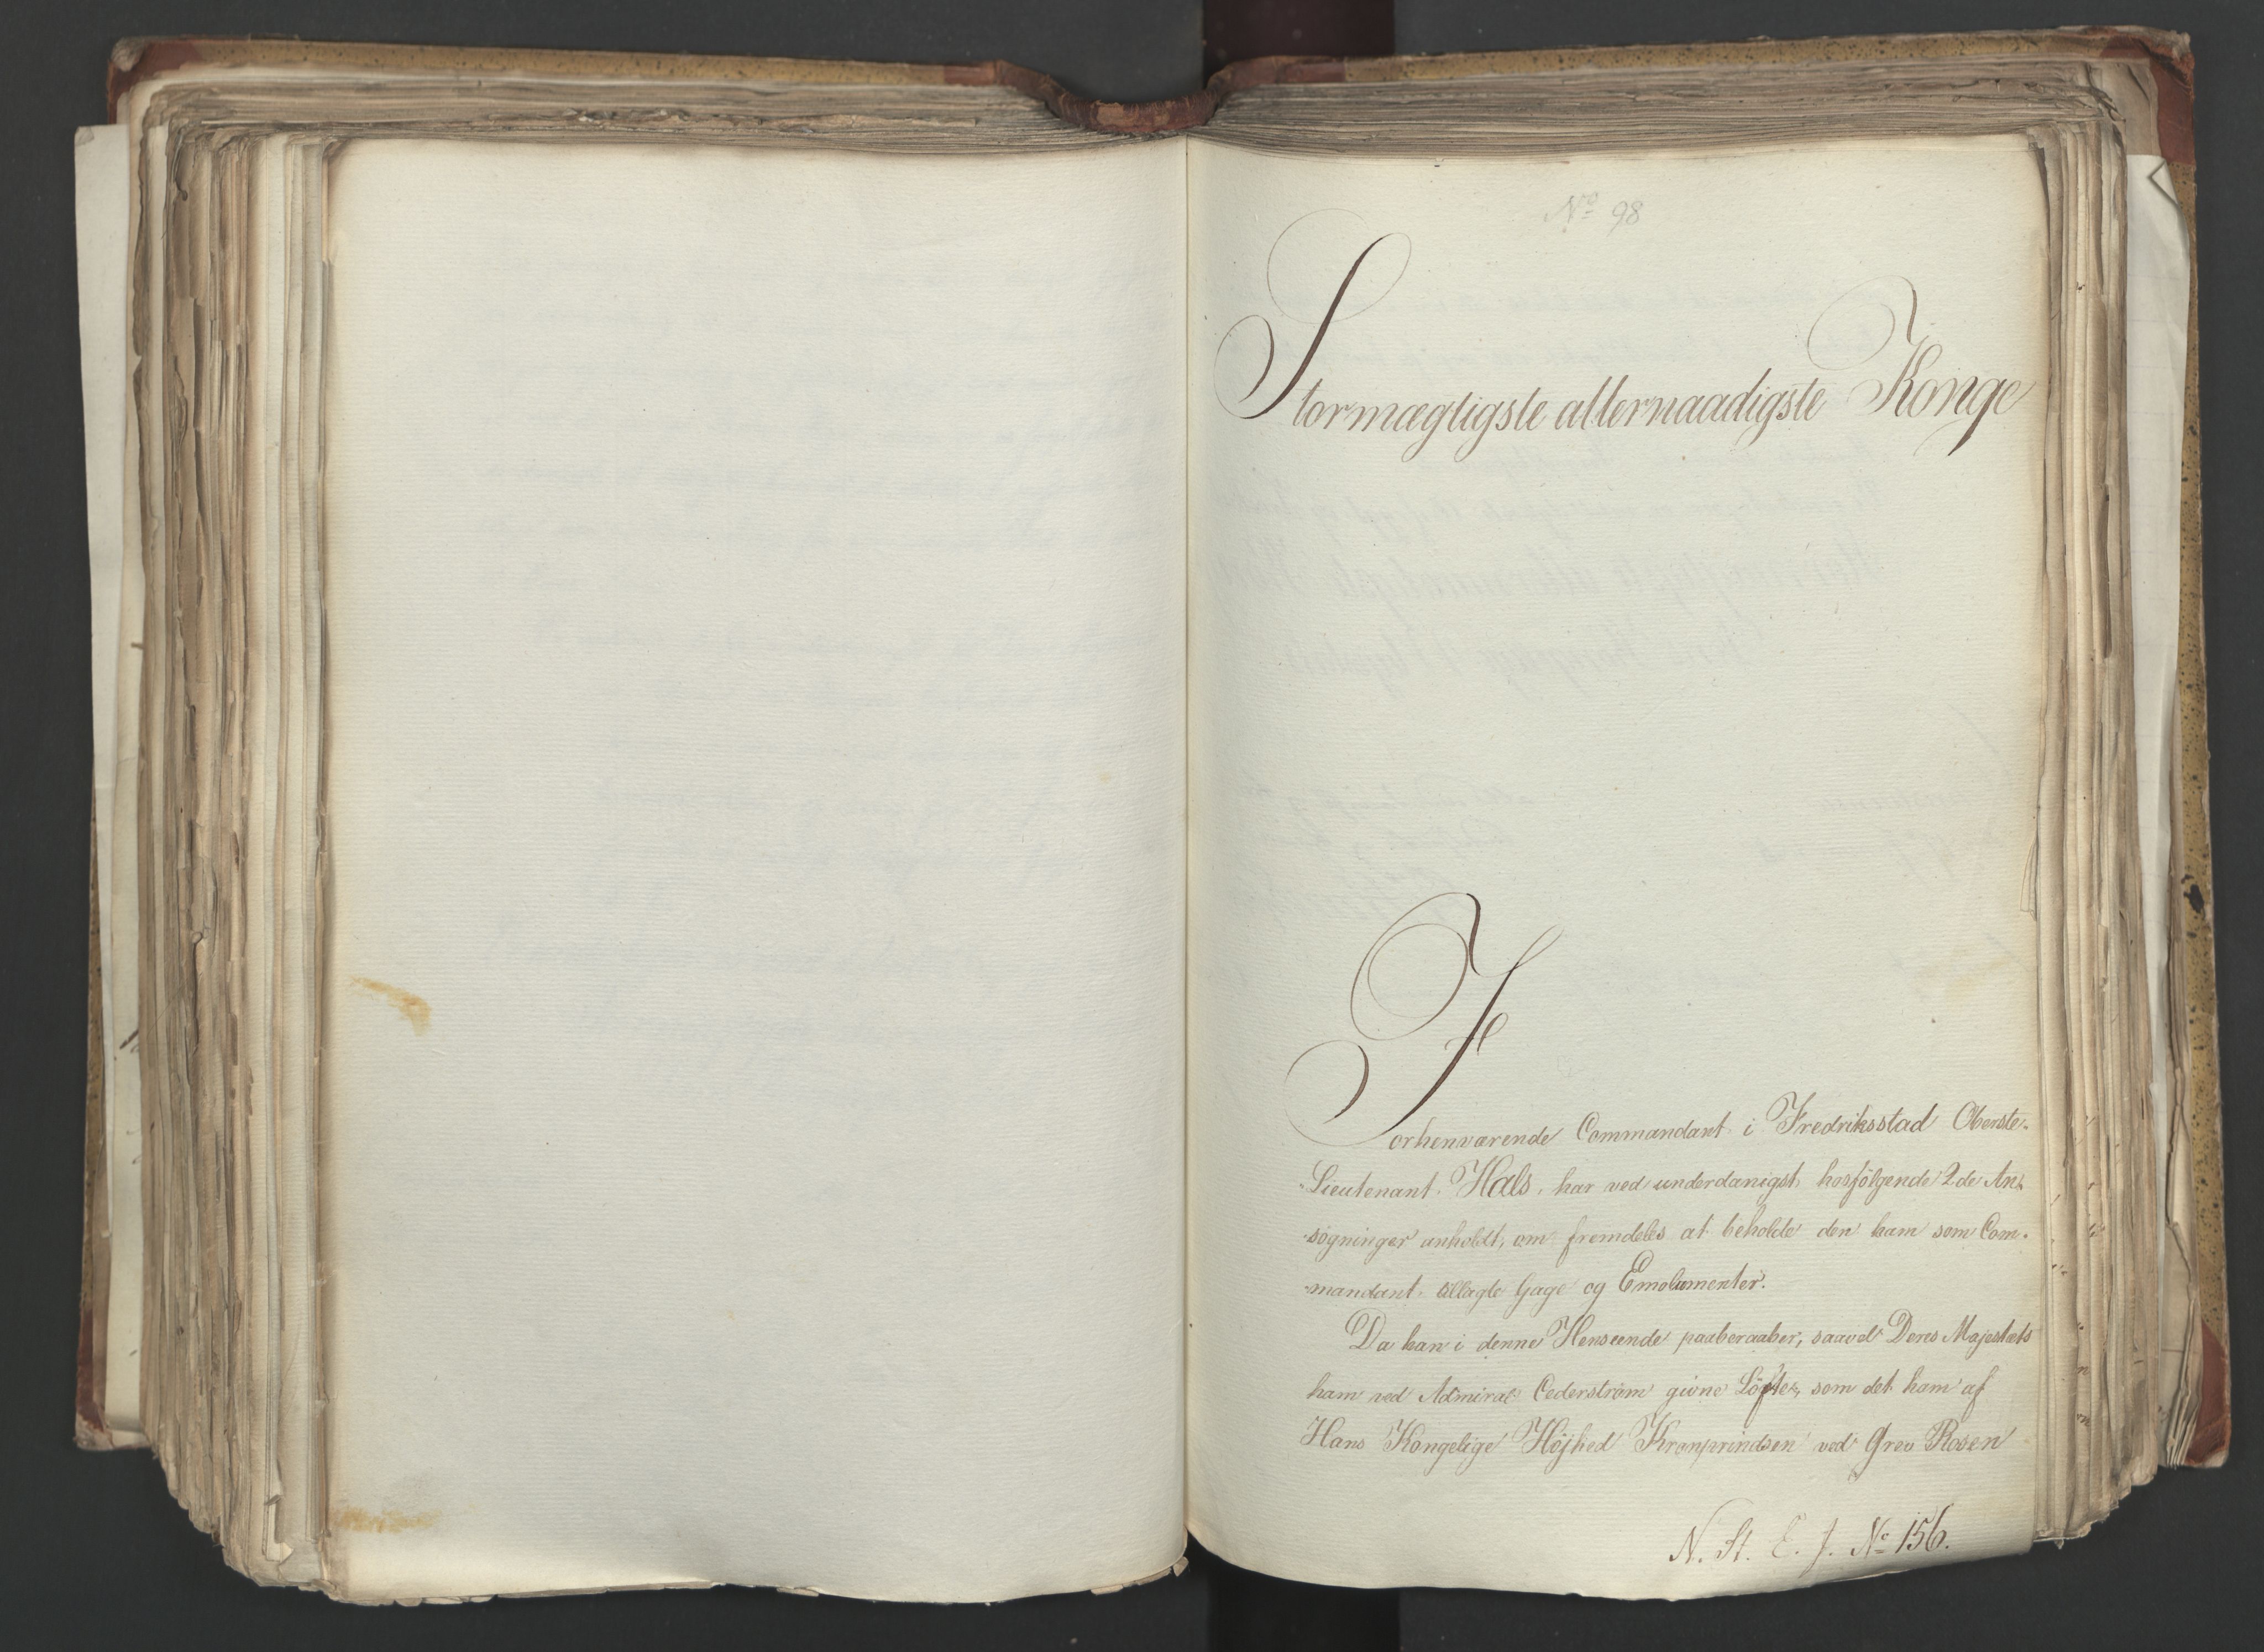 No 98
Stormægtigste allernaadigste Konge
Forhenværende Commandant i Fredriksstad Oberste-
Lieutenant Hals, har ved underdanigst hosfölgende 2de An-
sögninger anholdt, om fremdeles at beholde den ham som Com-
mandant tillagte Gage og Emolumenter.
Da han i denne Henseende paaberaaber, saavel Deres Majestæts
ham ved Admiral Cederström givne Löfte, som det ham af
Hans Kongelige Höjhed Kronprindsen ved Grev Rosen
N. St. E. J. No 156.